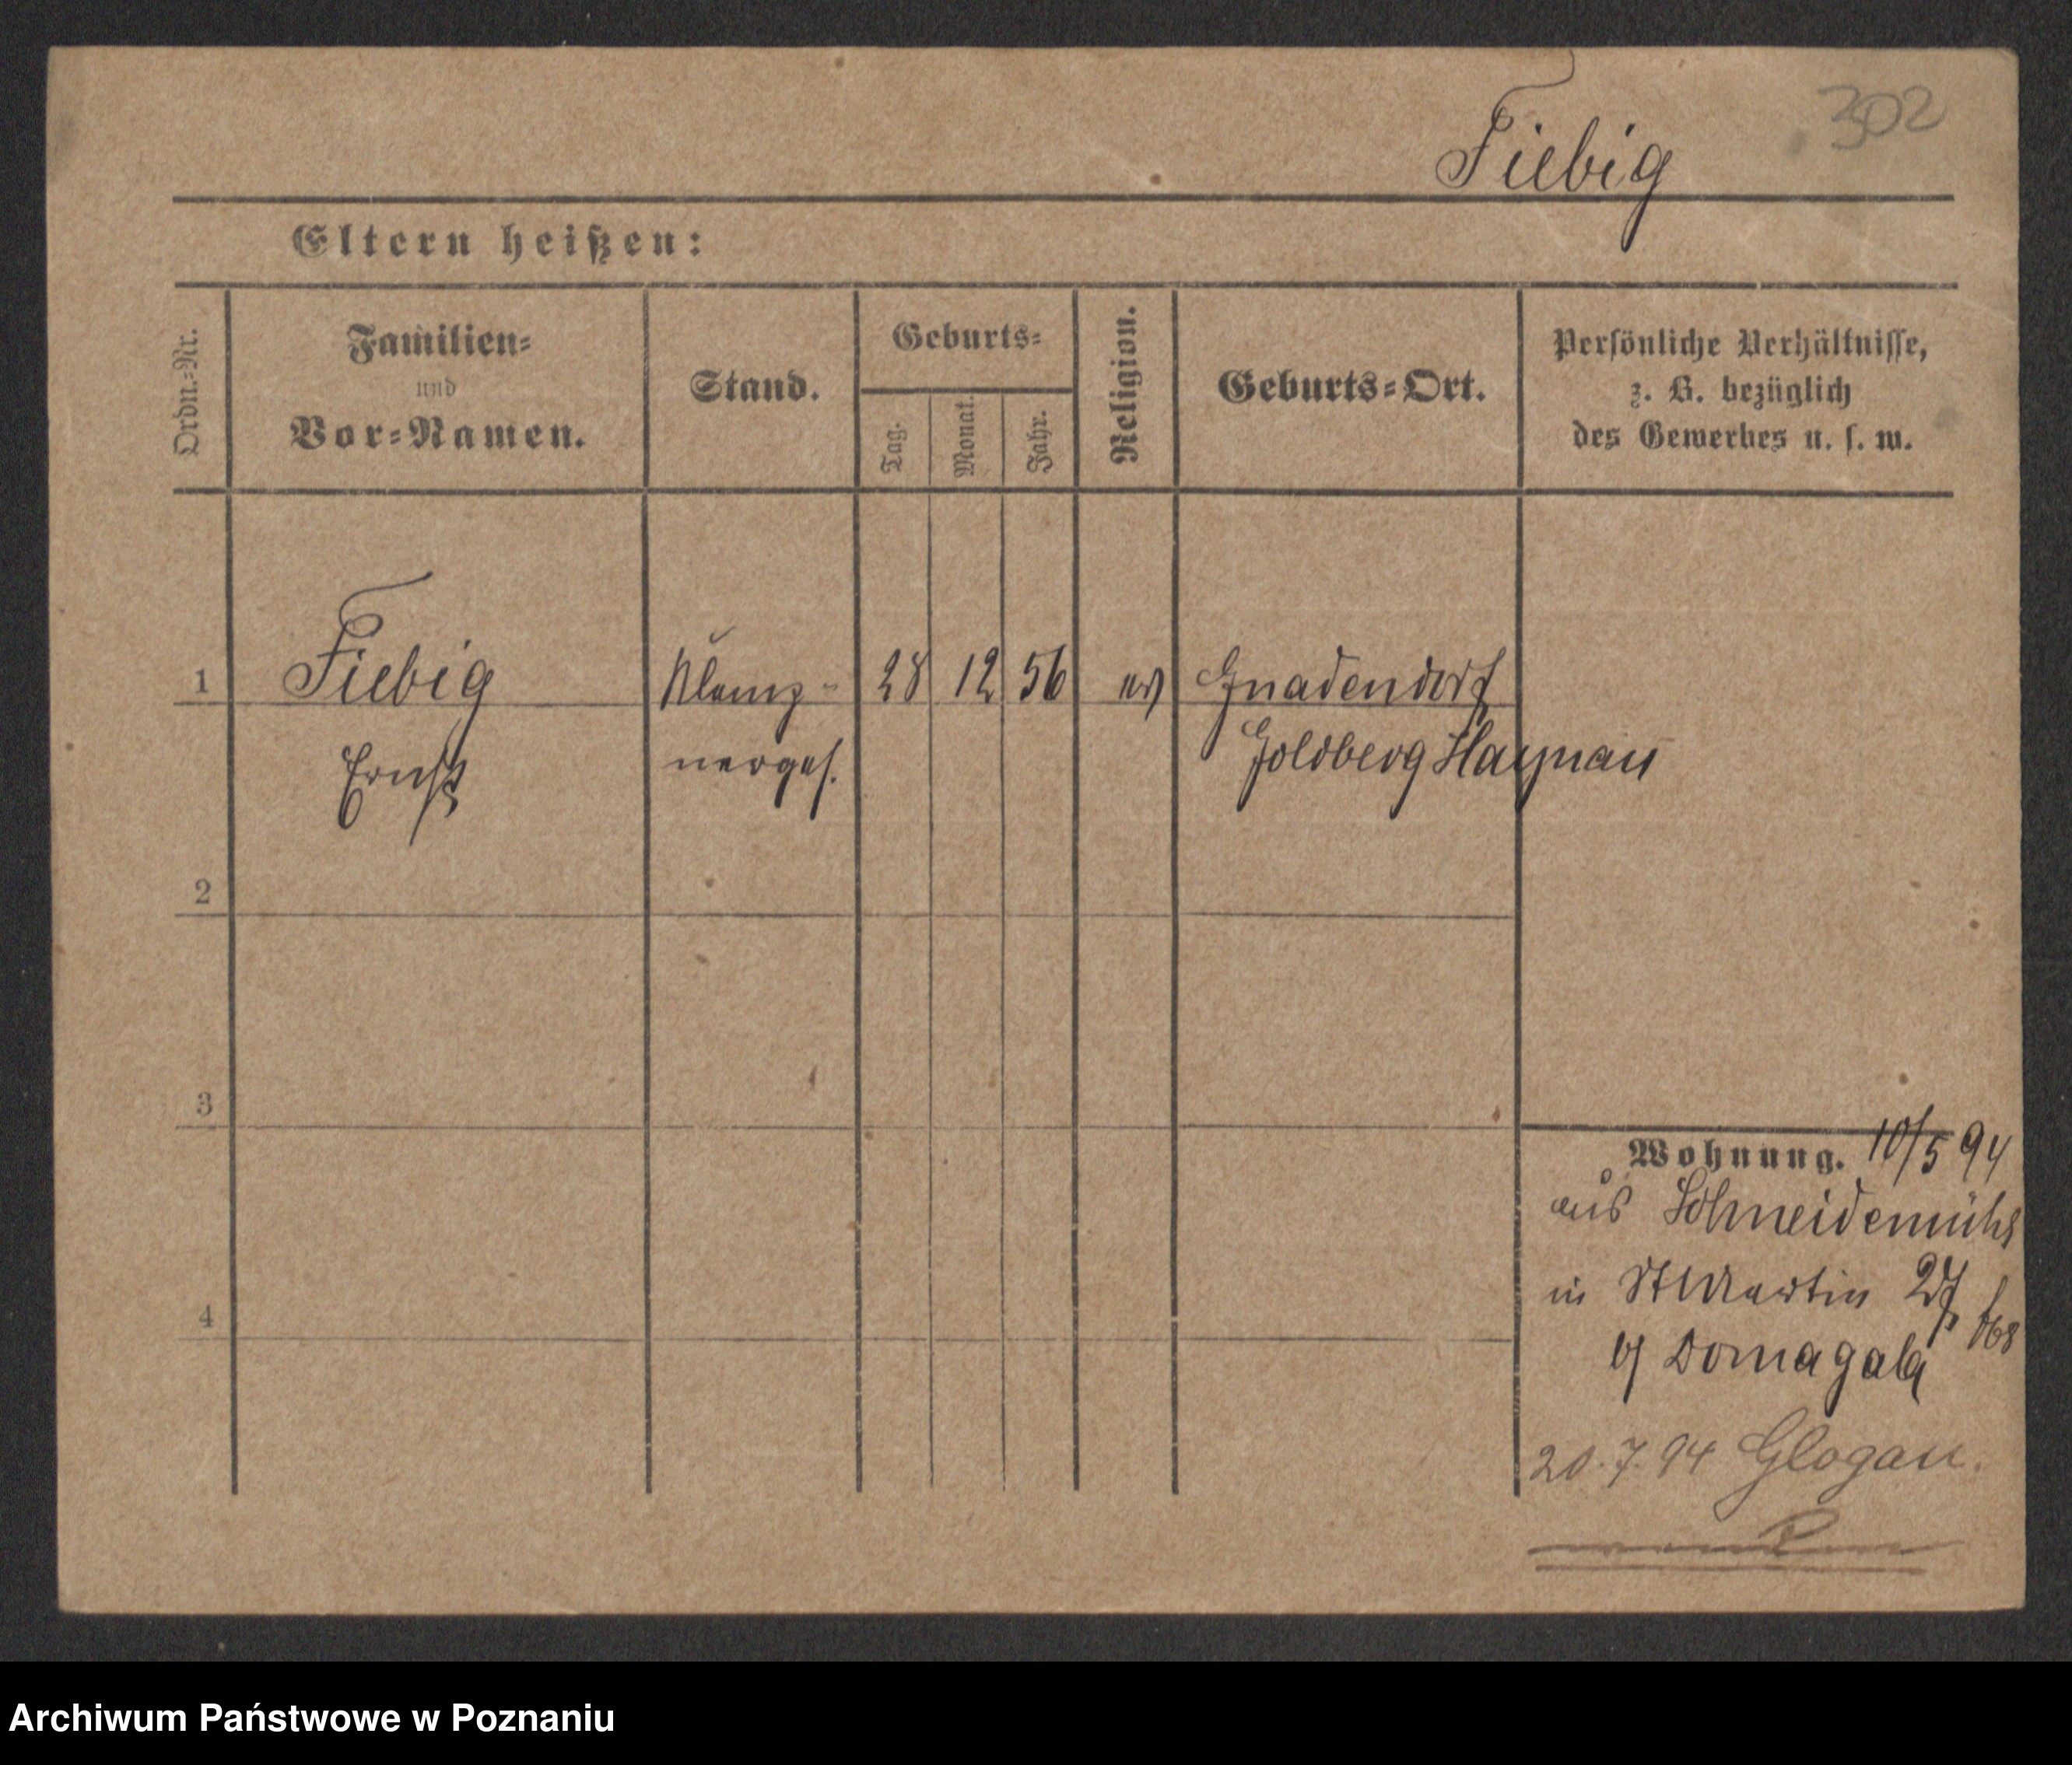 302
Fiebig
Eltern heißen:
Ordn.-Nr.
Familien-
und
Vor-Namen.
Stand.
Geburts-
Tag.
Monat.
Jahr.
Religion.
Geburts-Ort.
Persönliche Verhältnisse,
z. B. bezüglich
des Gewerbes u. s. w.
1 Fiebig Klemp- 28 12 56 ev Gnadendorf
Ernst nerges. Goldberg Haynau
2
3
4
Wohnung. 10/5 94
aus Schneidemühl
in St Martin 27
b/ Domagala
20.7.94 Glogau.
Archiwum Państwowe w Poznaniu